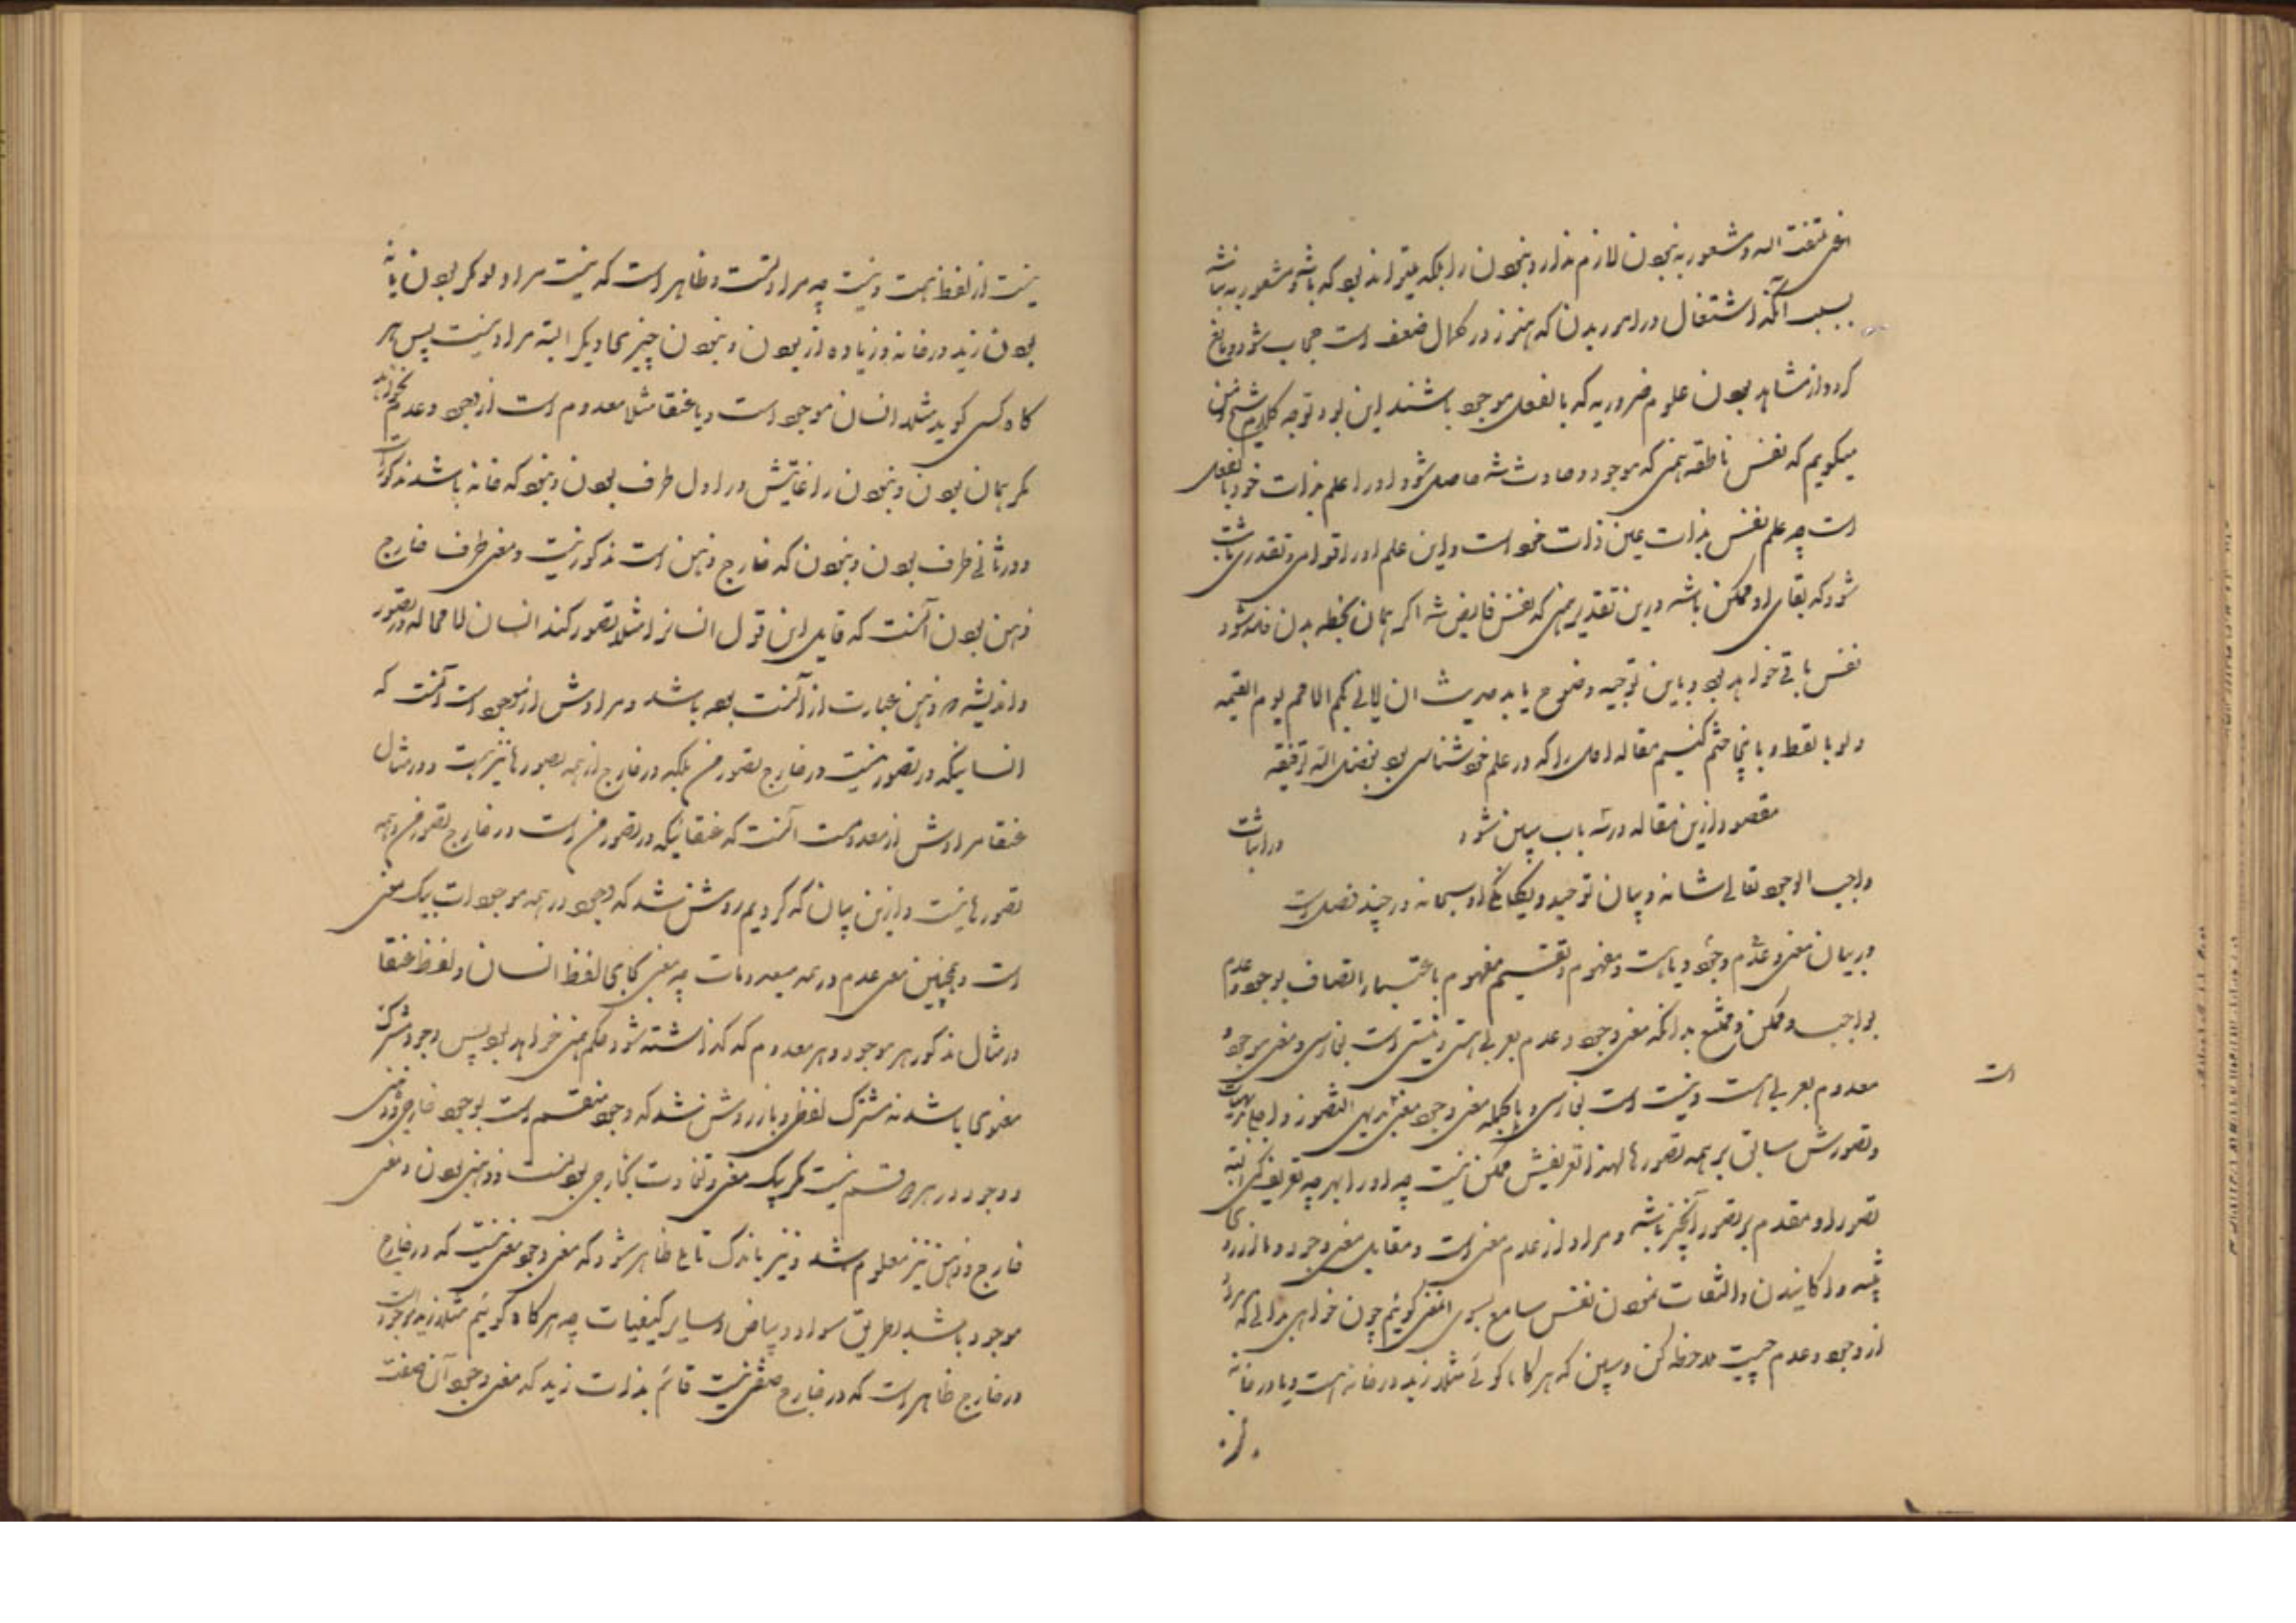 ملتفت الیه و شعور به نبودن لازم ندارد نبودن را بلکه میتواند بود که باشد و شعور به نباشد
بسبب آنکه اشتغال در امر بدن که هنوز در کمال ضعف است حجاب شود و مانع
کردد از مشاهد بودن علوم ضروریه که بالفعل موجود باشند این بود توجیه کلام شیخ و من
میکویم که نفس ناطقه همین که موجود و حادث شد حاصل شود او را علم بذات خود بالفعل
است چه علم نفس بذات عین ذات خود است و این علم او را قوام و تقدری باشد
شود که بقای او ممکن باشد درین تقدیر همین که نفس فایض شد اکر همان لحظه بدن فاسد شود
نفس باقی خواهد بود و باین توجیه وضوح یابد حدیث انی اباهی بکم الامم یوم القیمه
ولو بالسقط و باینجا ختم کنیم مقاله اول را که در علم خودشناسی بود بفضل الله و توفیقه
مقصود ازین مقاله در سه باب مبین شود در اثبات
واجب الوجود تعالی شانه و بیان توحید و یکانکی او سبحانه در چند فصل است
در بیان معنی عدم و وجود و ماهیت و مفهوم و تقسیم مفهوم باعتبار اتصاف بوجود و عدم
بواجب و ممکن و ممتنع بدانکه معنی وجود و عدم بعربی هستی و نیستی است بفارسی و معنی موجود و
معدوم بعربی هست و نیست است بفارسی و بالجمله معنی وجود معنی بدیهی التصور و اجلی بدیهیات است
و تصورش سابق بر همه تصورها لهذا تعریفش ممکن نیست چه او را بهر چه تعریف کنی البته
تصور او مقدم بر تصور آنچیز باشد و مراد از عدم معنی است مقابل معنی وجود و ما از برای
تنبیه و آکاهانیدن و التفات نمودن نفس سامع بسوی این معنی کوئیم چون خواهی بدانی که مراد
از وجود و عدم چیست ملاحظه کن و ببین که هر کاه کوئی مثلا زید در خانه هست و یا در خانه
نیست از لفظ هست و نیست چه مراد تست و ظاهر است که نیست مراد تو مکر بودن یا نه
بودن زید در خانه و زیاده از بودن و نبودن چیزی دیکر البته مراد نیست پس هر
کاه کسی کوید مثلا انسان موجود است و یا عنقا مثلا معدوم است از وجود و عدم نخواهد
مکر همان بودن و نبودن را غایتش در اول ظرف بودن و نبودن که خانه باشد مذکور است
و در ثانی ظرف بودن و نبودن که خارج ذهن است مذکور نیست و معنی ظرف خارج
ذهن بودن آنست که قایل این قول انسانرا مثلا تصور کند انسان لامحاله در تصور
و اندیشه و ذهن عبارت از آنست بوده باشد و مرادش از موجود است آنست که
انسانیکه در تصور منست در خارج تصور من بلکه در خارج از همه تصورها نیز هست و در مثال
عنقا مرادش از معدومست آنست که عنقائیکه در تصور من است در خارج تصور من و همه
تصورها نیست و ازین بیان که کردیم روشن شد که وجود در همه موجودات بیک معنی
است و همچنین معنی عدم در همه معدومات چه معنی بجای لفظ انسان و لفظ عنقا
در مثال مذکور هر موجود و هر معدوم که کذاشته شود حکم همین خواهد بود پس وجود مشترک
معنوی باشد نه مشترک لفظی و باز روشن شد که وجود منقسم است بوجود خارجی و ذهنی
و وجود در هر دو قسم نیست مکر یک معنی و تفاوت بخارجی بودنست و ذهنی بودن و معنی
خارج و ذهن نیز معلوم شد و نیز باندک تامل ظاهر شود که معنی وجود معنی نیست که در خارج
موجود باشد بطریق سواد و بیاض و سایر کیفیات چه هر کاه کوئیم مثلا زید موجود است
در خارج ظاهر است که در خارج صفتی نیست قائم بذات زید که معنی وجود آن صفت
است